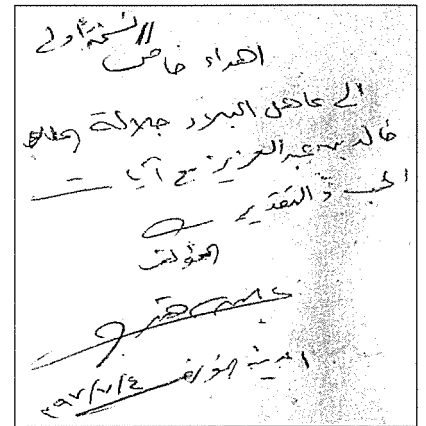 النسخة الأولى
اهداء خاص
الى عاهل البلاد جلالة الملك
خالد بن عبد العزيز مع آيات
الحب والتقدير
المؤلف
المدينة المنورة